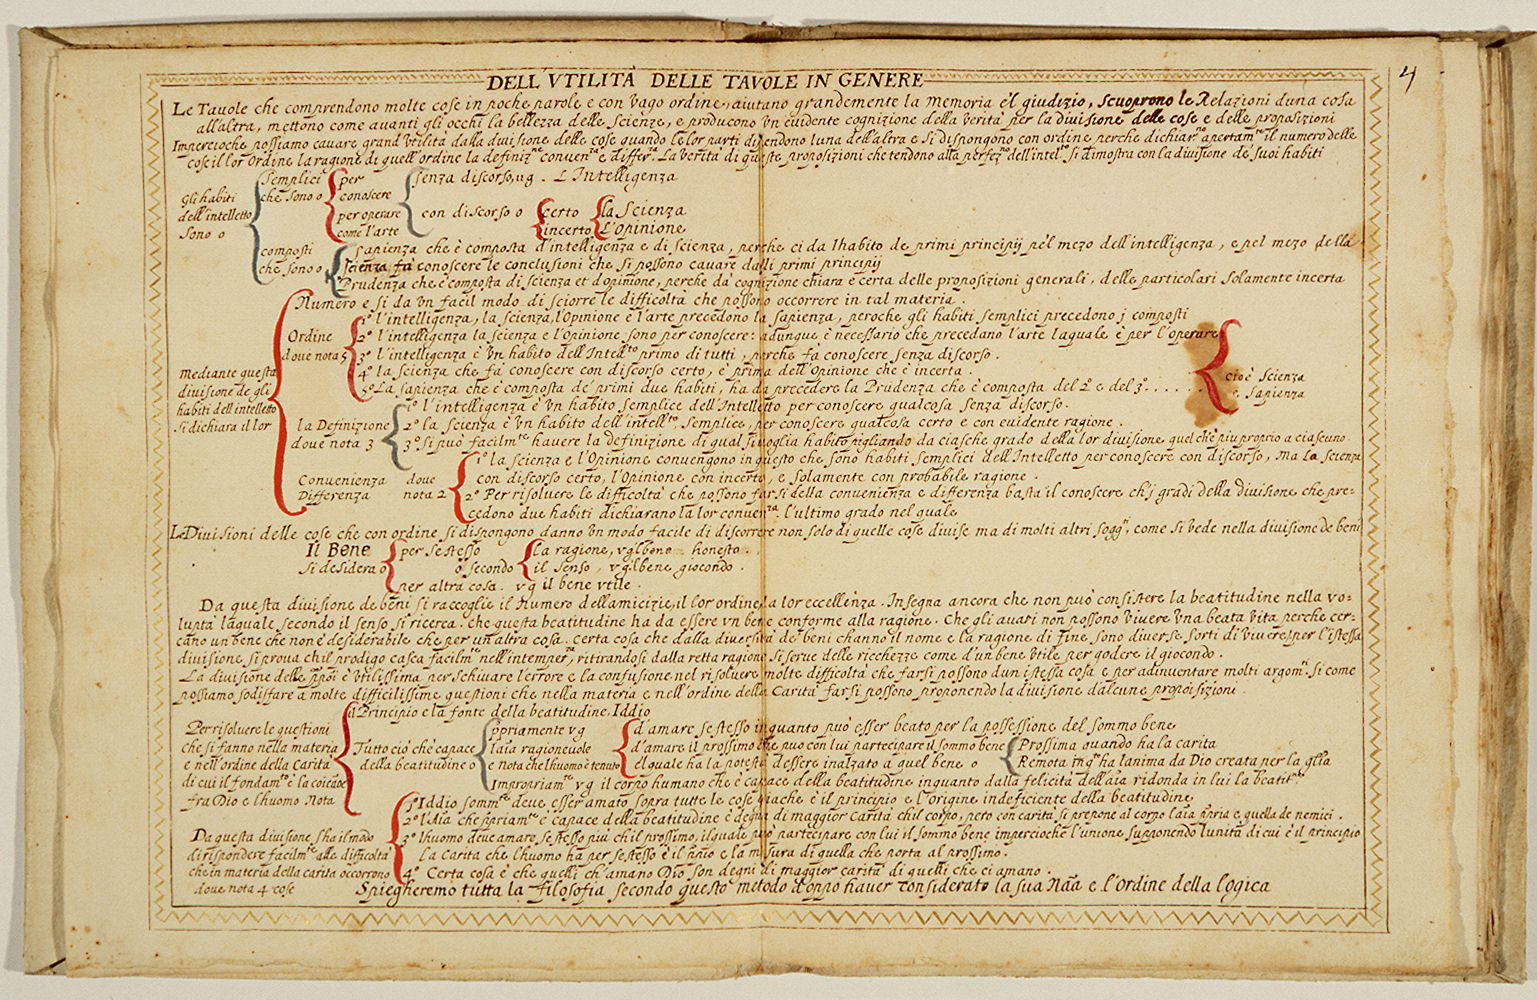 DELL VTILITÀ DELLE TAVOLE IN GENERE
4
Le Tauole che comprendono molte cose in poche parole e con vago ordine, aiutano grandemente la memoria e'l giudizio, scuoprono le Relazioni d'una cosa
all'altra, mettono come auanti gli occhi la bellezza delle scienze, e producono vn euidente cognizione della verità per la diuisione delle cose e delle proposizioni
Imperciochè possiamo cauare grand'vtilità dalla diuisione delle cose quando le lor parti dipendono l'una dell'altra e si dispongono con ordine perche dichiar.no apertam.te il numero delle
cose il lor ordine la ragione di quell'ordine la definiz.ne conuen.za e differ.za. La verità di queste proposizioni che tendono alla perfez.ne dell'intel.to si dimostra con la diuisione de' suoi habiti
Gli habiti
dell'intelletto
sono o
semplici
che sono o
per
conoscere
per operare
come l'arte
senza discorso, u.g. L'Intelligenza
con discorso o
certo
incerto
la Scienza
l'Opinione
composti
che sono o
sapienza che è composta d'intelligenza e di scienza, perche ci da l'habito de primi principij pe'l mezo dell'intelligenza, e pel mezo della
scienza fà conoscere le conclusioni che si possono cauare dalli primi principij
Prudenza che è composta di scienza et d'opinione, perche dà cognizione chiara e certa delle proposizioni generali, delle particolari solamente incerta
Mediante questa
diuisione de gli
habiti dell'intelletto
si dichiara il lor
Numero e si da vn facil modo di sciorre le difficoltà che possono occorrere in tal materia.
Ordine
doue nota 5
1º l'intelligenza, la scienza, l'Opinione e l'arte precedono la sapienza, peroche gli habiti semplici precedono j composti
2º l'intelligenza la scienza e l'Opinione sono per conoscere: adunque è necessario che precedano l'arte laquale è per l'operare
3º l'intelligenza è vn habito dell'Intell.to primo di tutti, perche fà conoscere senza discorso.
4º la scienza che fà conoscere con discorso certo, è prima dell'Opinione che è incerta.
5º La sapienza che è composta de' primi due habiti, ha da precedere la Prudenza che è composta del 2º e del 3º. . . . . .
cioè scienza
e sapienza
la Definizione
doue nota 3
1º l'intelligenza è vn habito semplice dell'Intelletto per conoscere qualcosa senza discorso.
2º la scienza è vn habito dell'intell.to semplice, per conoscere qualcosa certo e con euidente ragione.
3º si può facilm.te hauere la definizione di qual si voglia habito pigliando da ciasche grado della lor diuisione quel ch'è piu proprio a ciascuno.
Conuenienza
Differenza
doue
nota 2
1º la scienza e l'Opinione conuengono in questo che sono habiti semplici dell'Intelletto per conoscere con discorso, ma la scienza
con discorso certo, l'Opinione con incerto, e solamente con probabile ragione.
2º Per risoluere le difficoltà che possono farsi della conuenienza e differenza basta il conoscere ch'j gradi della diuisione che pre=
cedono due habiti dichiarano la lor conuen.za. l'ultimo grado nel quale
Le Diuisioni delle cose che con ordine si dispongono danno vn modo facile di discorrere non solo di quelle cose diuise ma di molti altri sogg.ti, come si vede nella diuisione de beni
Il Bene
si desidera o
per se stesso
o secondo
per altra cosa. vg il bene vtile.
la ragione, vg il bene honesto.
il senso, vg il bene giocondo.
Da questa diuisione de beni si raccoglie il Numero dell'amicizie, il lor ordine, la lor eccellenza. Insegna ancora che non può consistere la beatitudine nella vo=
luptà laquale secondo il senso si ricerca. che questa beatitudine ha da essere vn bene conforme alla ragione. Che gli auari non possono viuere vna beata vita perche cer=
cano un bene che non è desiderabile che per un'altra cosa. Certa cosa che dalla diuersità de' beni c'hanno il nome e la ragione di Fine, sono diuerse sorti di viuere, per l'istessa
diuisione si proua ch'il prodigo casca facilm.te nell'intemper.za, ritirandosi dalla retta ragione si serue delle ricchezze come d'un bene vtile per godere il giocondo.
La diuisione delle ppõi è vtilissima per schiuare l'errore e la confusione nel risoluere molte difficoltà che farsi possono d'un istessa cosa e per adinuentare molti argom.ti, si come
possiamo sodiffare a molte difficilissime questioni che nella materia e nell'ordine della Carità farsi possono proponendo la diuisione d'alcune proposizioni.
Per risoluere le questioni
che si fanno nella materia
e nell'ordine della Carità
di cui il fondam.to è la
fra Dio e l'huomo Nota
il Principio e la fonte della beatitudine, Iddio
Tutto ciò ch'è capace
della beatitudine o
ppriamente vg
l'aīa ragioneuole
e nota che l'huomo è tenuto
d'amare se stesso inquanto può esser beato per la possessione del sommo bene
d'amare il prossimo che puo con lui partecipare il sommo bene
el quale ha la potestà d'essere inalzato a quel bene o
Prossima quando ha la carità
Remota inq.to ha l'anima da Dio creata per la glīa
Impropriam.te vg il corpo humano che è capace della beatitudine inquanto dalla felicità dell'aīa ridonda in lui la beatit.ne
Da questa diuisione s'ha il modo
di rispondere facilm.te alle difficoltà
che in materia della carità occorrono
doue nota 4 cose
1º Iddio somm.te deue esser amato sopra tutte le cose giache è il principio e l'origine indeficiente della beatitudine
2º l'Aīa che ppriam.te è capace della beatitudine è degna di maggior carità ch'il corpo, però con carità si prepone al corpo l'aīa ppria e quella de nemici.
3º l'huomo deue amare se stesso più ch'il prossimo, ilquale può partecipare con lui il sommo bene imperciochè l'unione supponendo l'unità di cui è il principio
La Carità che l'huomo ha per se stesso è il ppio e la misura di quella che porta al prossimo.
4º Certa cosa è che quelli ch'amano Dio son degni di maggior carità di quelli che ci amano.
Spiegheremo tutta la filosofia secondo questo metodo doppo hauer considerato la sua Nāa e l'Ordine della logica